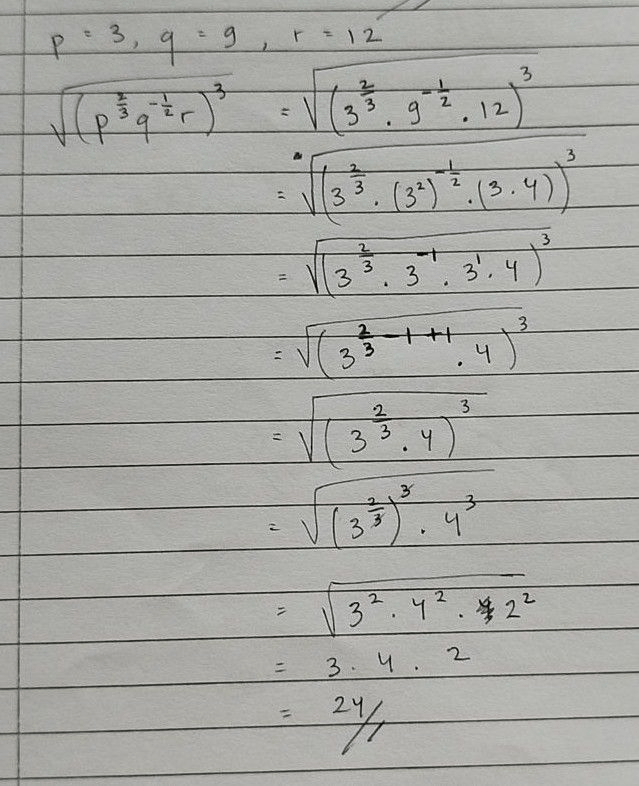 p = 3, q = 9, r = 12
√((p^(2/3) q^(-1/2) r)^3) = √((3^(2/3) . 9^(-1/2) . 12)^3)
= √((3^(2/3) . (3^2)^(-1/2) . (3 . 4))^3)
= √((3^(2/3) . 3^(-1) . 3^1 . 4)^3)
= √((3^(2/3 - 1 + 1) . 4)^3)
= √((3^(2/3) . 4)^3)
= √((3^(2/3))^3 . 4^3)
= √(3^2 . 4^2 . 2^2)
= 3 . 4 . 2
= 24 //